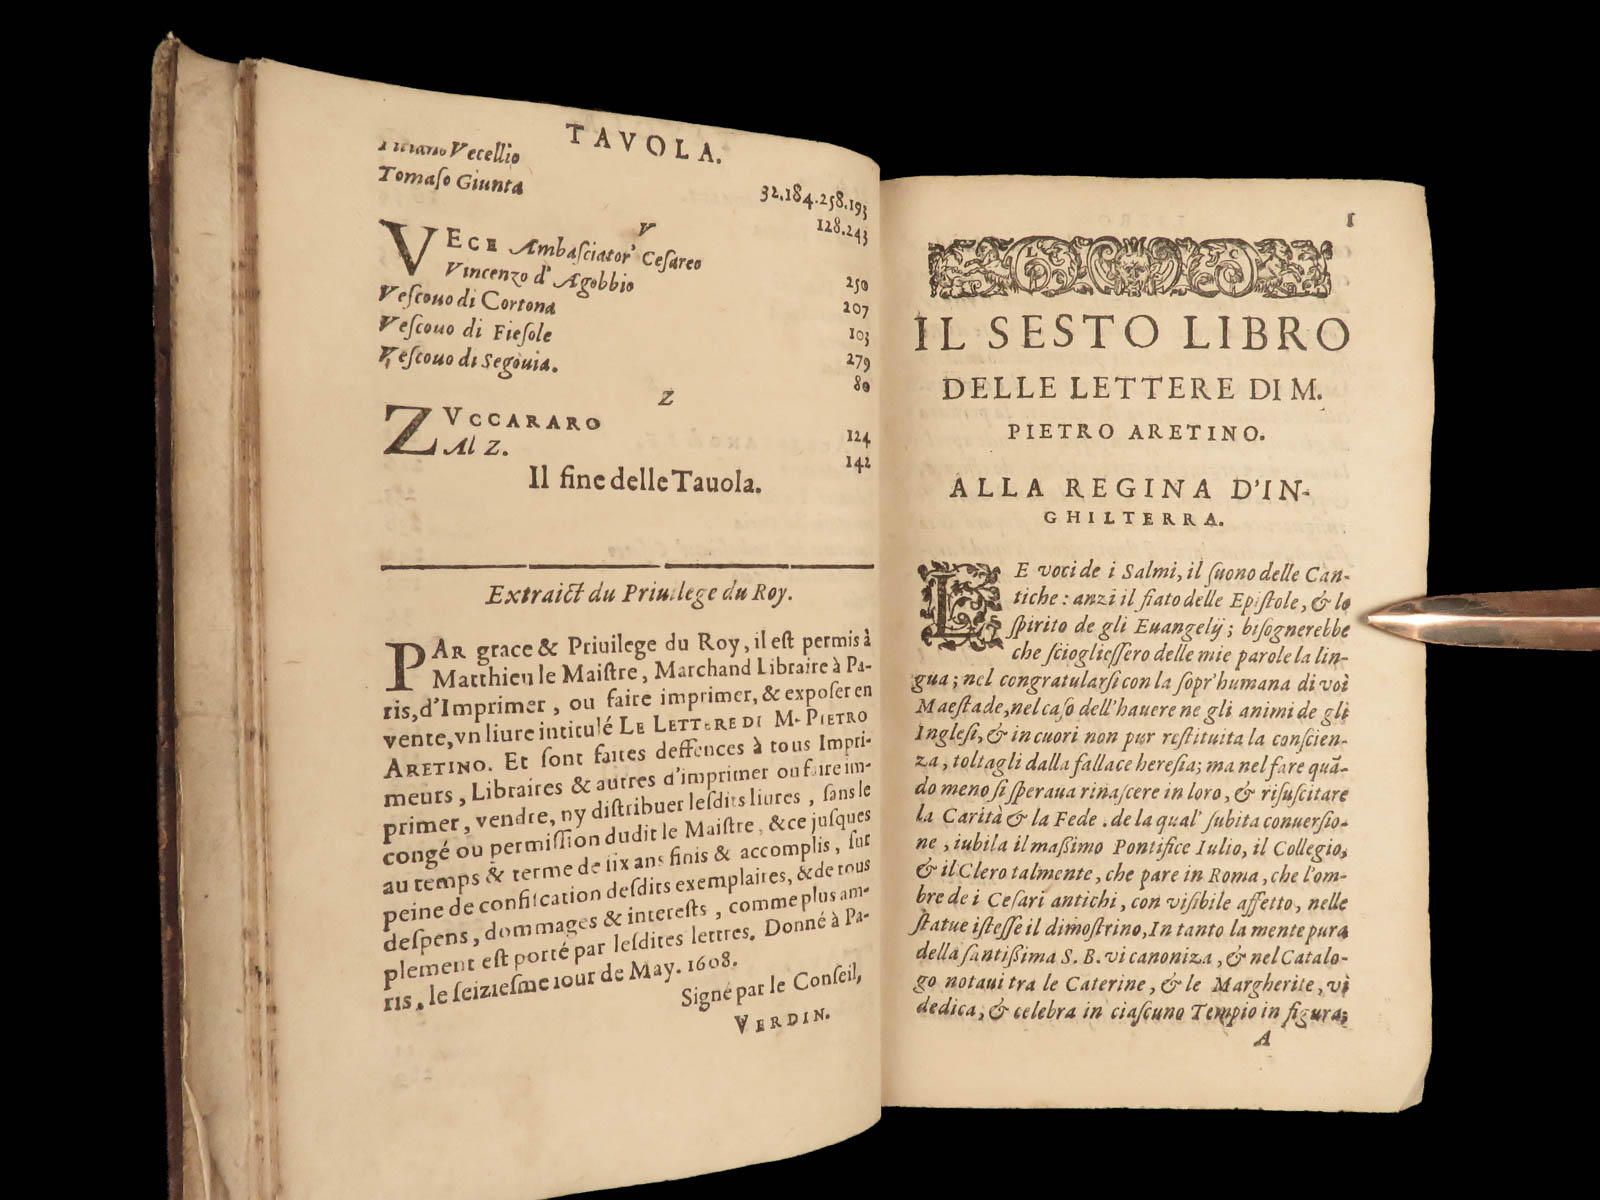 TAVOLA.
Titiano Vecellio 32.184.258.193
Tomaſo Giunta 128.243
V
VECE Ambaſciator Ceſareo 250
Vincenzo d'Agobbio 207
Veſcouo di Cortona 103
Veſcouo di Fieſole 279
Veſcouo di Segouia. 80
Z
ZVCCARARO 124
Al Z. 142
Il fine delle Tauola.
Extraict du Priuilege du Roy.
PAR grace & Priuilege du Roy, il eſt permis à
Matthieu le Maiſtre, Marchand Libraire à Pa-
ris, d'Imprimer, ou faire imprimer, & expoſer en
vente, vn liure intitulé LE LETTERE DI M. PIETRO
ARETINO. Et ſont faites deffences à tous Impri-
meurs, Libraires & autres d'imprimer ou faire im-
primer, vendre, ny diſtribuer leſdits liures, ſans le
congé ou permiſſion dudit le Maiſtre, & ce juſques
au temps & terme de ſix ans finis & accomplis, ſur
peine de confiſcation deſdits exemplaires, & de tous
deſpens, dommages & intereſts, comme plus am-
plement eſt porté par leſdites lettres. Donné à Pa-
ris, le ſeizieſme iour de May. 1608.
Signé par le Conſeil,
VERDIN.
1
IL SESTO LIBRO
DELLE LETTERE DI M.
PIETRO ARETINO.
ALLA REGINA D'IN-
GHILTERRA.
LE voci de i Salmi, il ſuono delle Can-
tiche: anzi il fiato delle Epiſtole, & lo
ſpirito de gli Euangelij; biſognerebbe
che ſcioglieſſero delle mie parole la lin-
gua; nel congratularſi con la ſopr'humana di voi
Maeſtade, nel caſo dell'hauere ne gli animi de gli
Ingleſi, & in cuori non pur reſtituita la conſcien-
za, toltagli dalla fallace hereſia; ma nel fare quã-
do meno ſi ſperaua rinaſcere in loro, & riſuſcitare
la Carità & la Fede. de la qual' ſubita conuerſio-
ne, iubila il maßimo Pontifice Iulio, il Collegio,
& il Clero talmente, che pare in Roma, che l'om-
bre de i Ceſari antichi, con viſibile affetto, nelle
ſtatue iſteſſe il dimoſtrino, In tanto la mente pura
della ſantißima S. B. vi canoniza, & nel Catalo-
go notaui tra le Caterine, & le Margherite, vi
dedica, & celebra in ciaſcuno Tempio in figura;
A